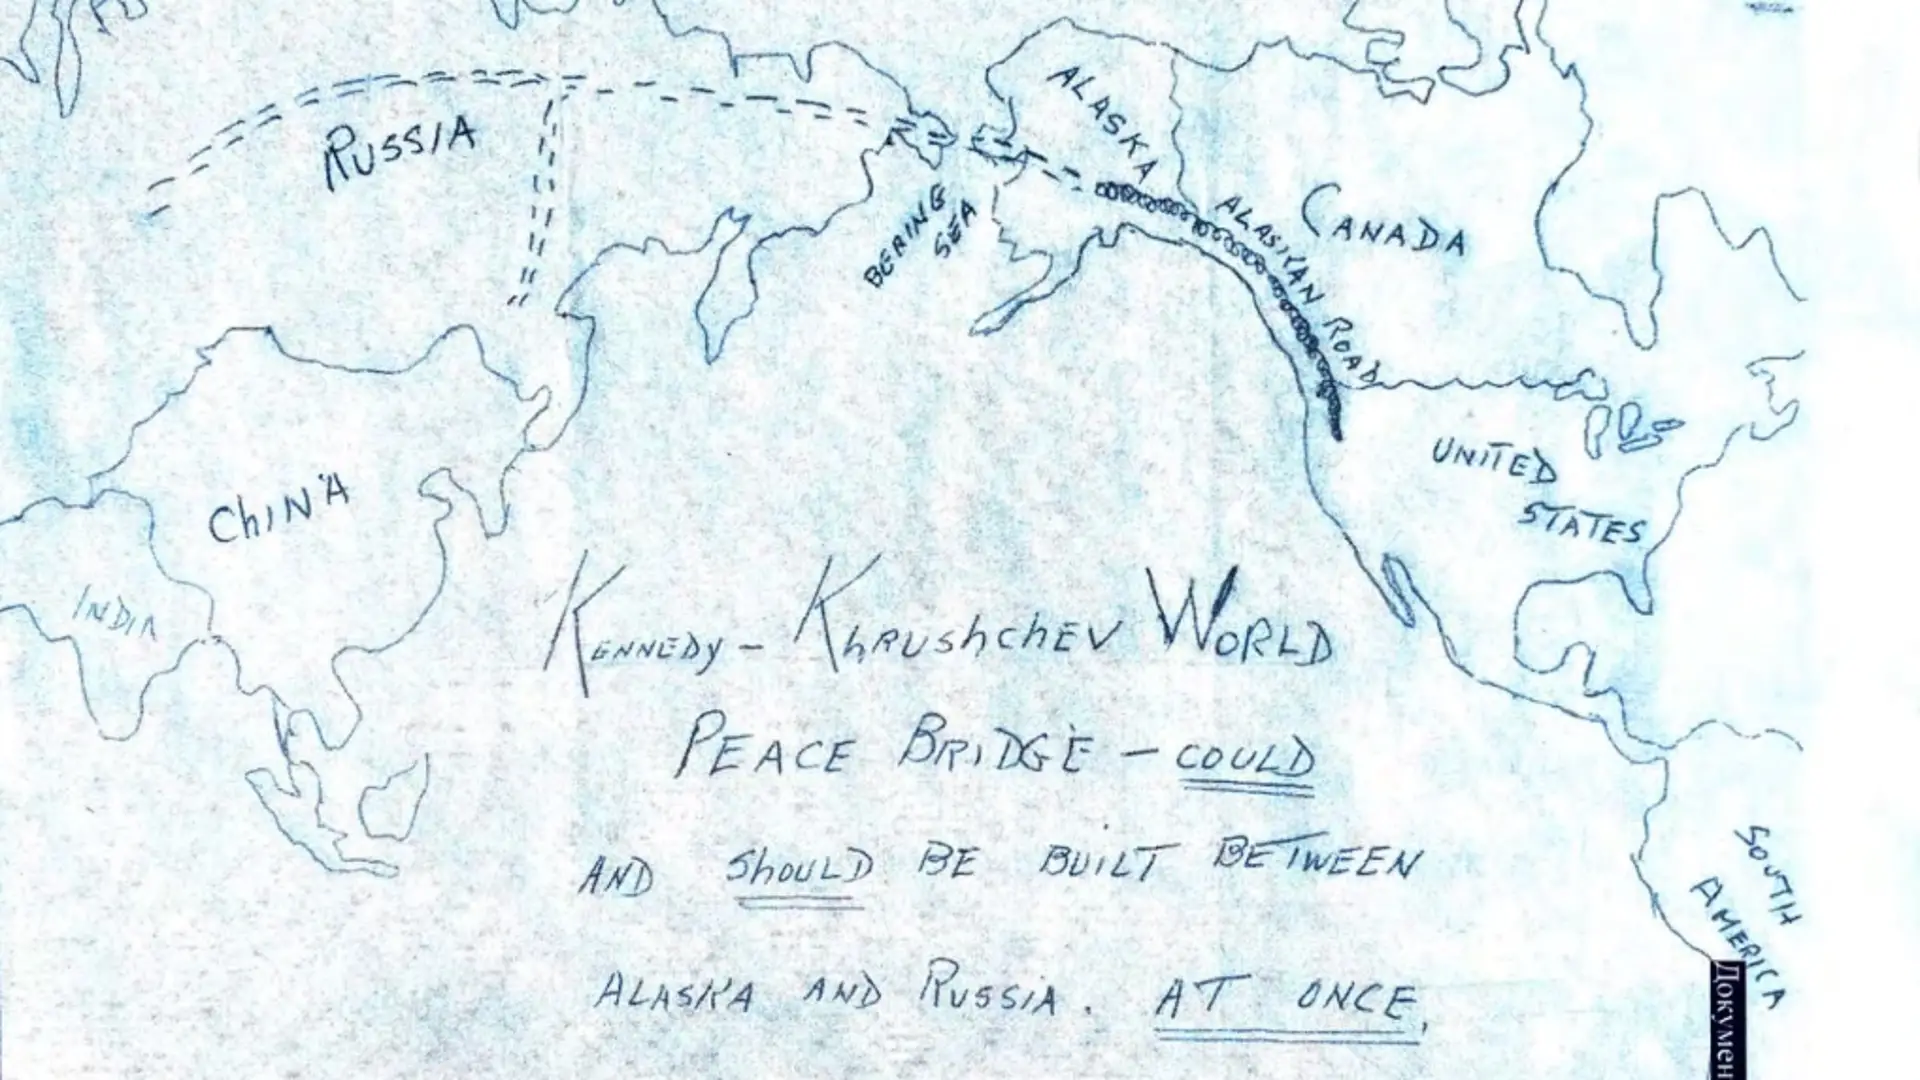 ALASKA
RUSSIA
CANADA
BERING
SEA
ALASKAN ROAD
UNITED
STATES
CHINA
INDIA
KENNEDY - KHRUSHCHEV WORLD
PEACE BRIDGE - COULD
AND SHOULD BE BUILT BETWEEN
ALASKA AND RUSSIA. AT ONCE,
SOUTH
AMERICA
Докумен